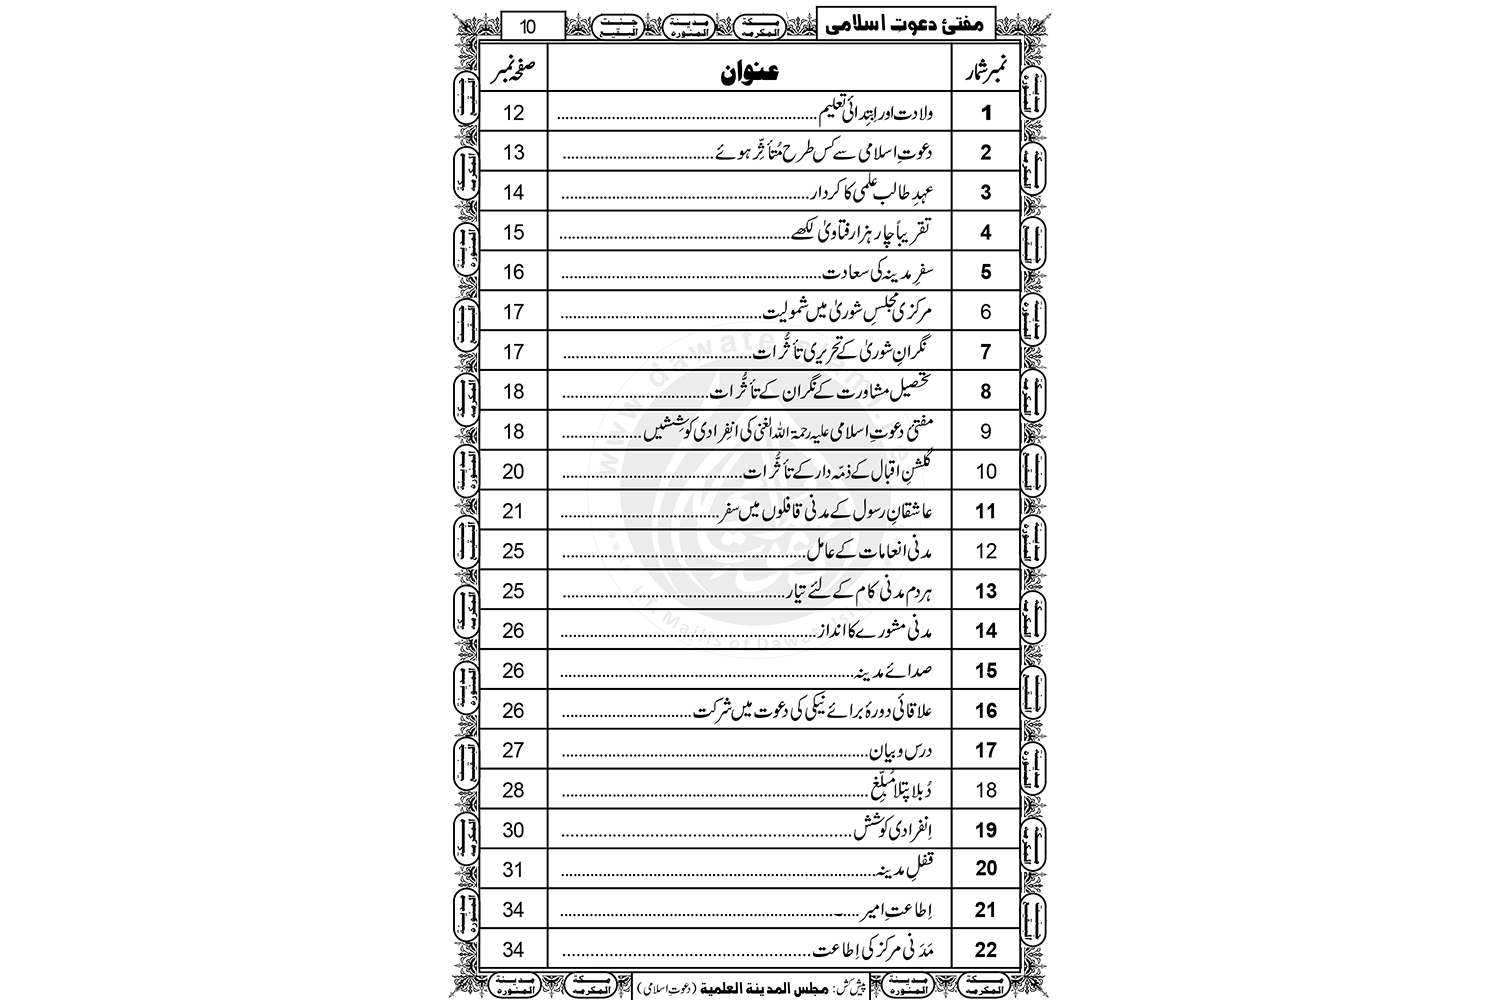 مفتیٔ دعوت اسلامی مكة المكرمه مدينة المنوره جنت البقيع 10
نمبر شمار عنوان صفحہ نمبر
1 ولادت اور اِبتِدائی تعلیم 12
2 دعوتِ اسلامی سے کس طرح مُتأثِّر ہوئے 13
3 عہدِ طالب علمی کا کردار 14
4 تقریباً چار ہزار فتاویٰ لکھے 15
5 سفرِ مدینہ کی سعادت 16
6 مرکزی مجلسِ شوریٰ میں شمولیت 17
7 نگرانِ شوریٰ کے تحریری تأثُّرات 17
8 تحصیل مشاورت کے نگران کے تأثُّرات 18
9 مفتیٔ دعوتِ اسلامی علیہ رحمۃ اللہ الغنی کی انفِرادی کوشِشیں 18
10 گلشنِ اقبال کے ذمّہ دار کے تأثُّرات 20
11 عاشقانِ رسول کے مدنی قافلوں میں سفر 21
12 مدنی انعامات کے عامل 25
13 ہر دم مدنی کام کے لئے تیّار 25
14 مدنی مشورے کا انداز 26
15 صدائے مدینہ 26
16 علاقائی دورۂ برائے نیکی کی دعوت میں شرکت 26
17 درس و بیان 27
18 دُبلا پتلا مُبلِّغ 28
19 اِنفرادی کوشش 30
20 قفلِ مدینہ 31
21 اِطاعتِ امیر 34
22 مَدَنی مرکز کی اِطاعت 34
مكة المكرمه مدينة المنوره پیش کش: مجلس المدينة العلمية (دعوتِ اسلامی) مكة المكرمه مدينة المنوره